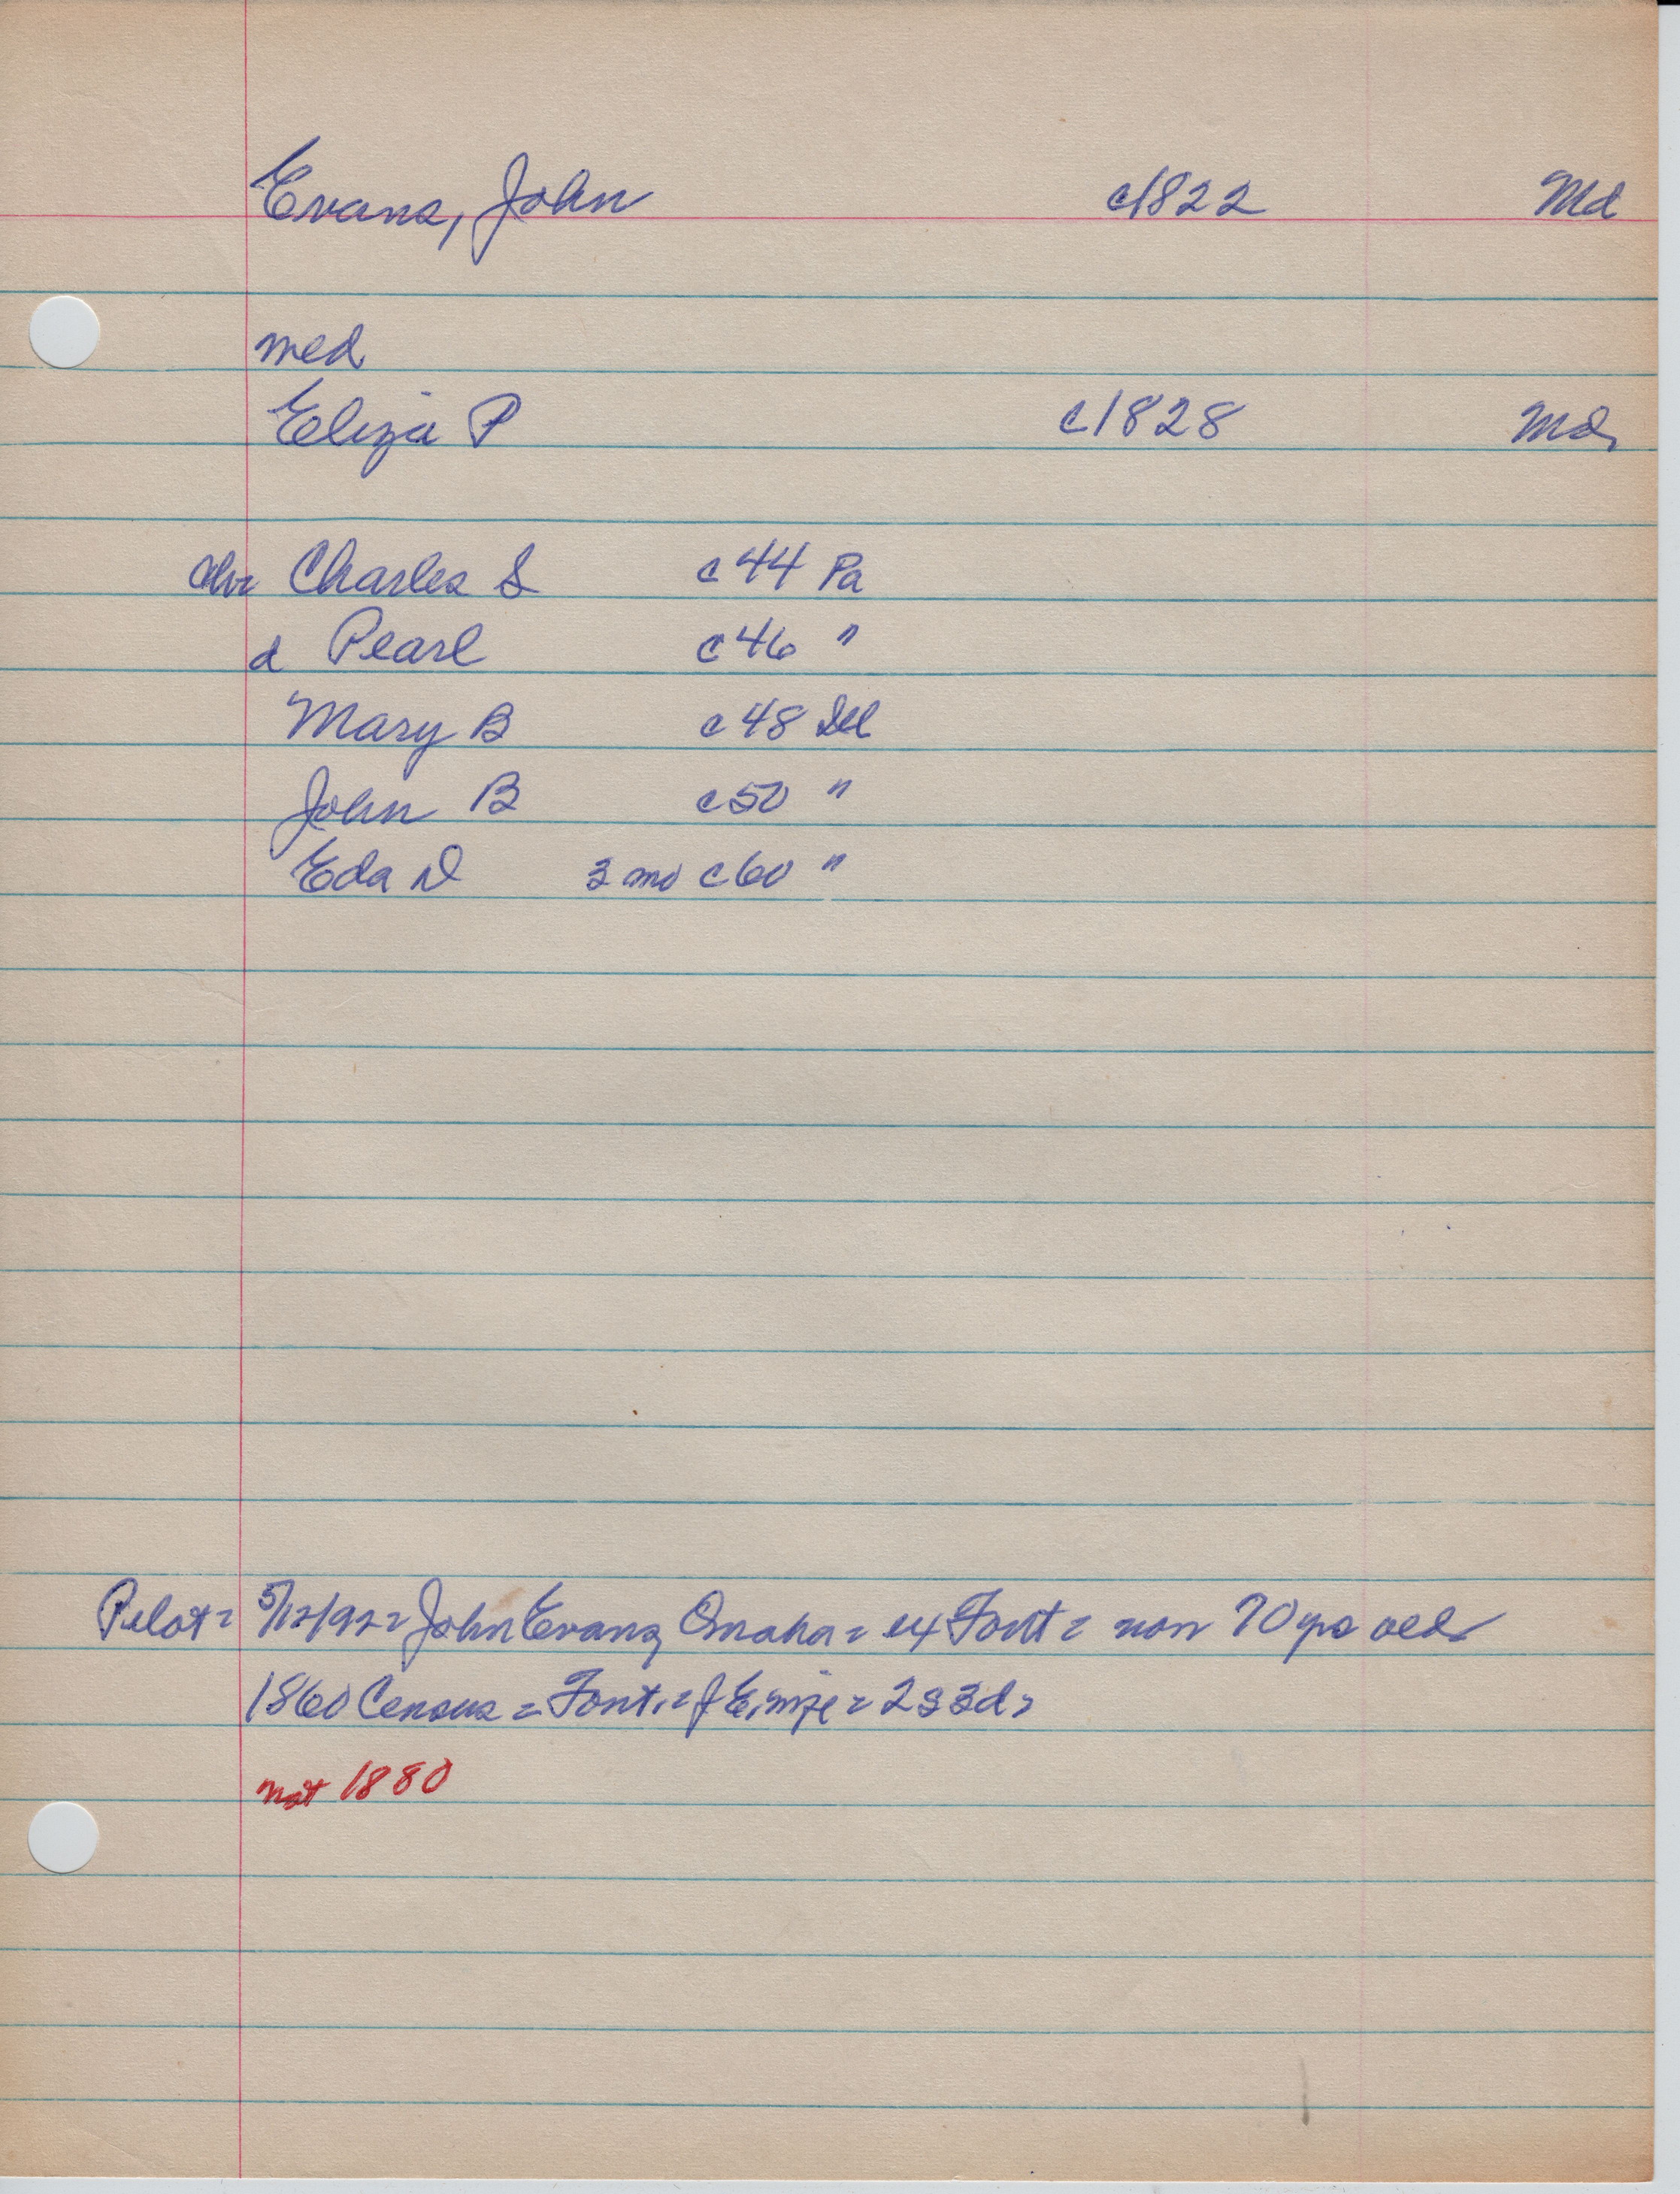 Evans, John c1822 Md
med
Eliza P c1828 Md
chr Charles S c44 Pa
d Pearl c46 "
Mary B c48 Del
John B c50 "
Eda D 3 mo c60 "
Pilot = 5/12/92 = John Evans, Omaha = ex Font = now 70 yrs old
1860 Census = Font. = J E, = 2s 3ds
not 1880